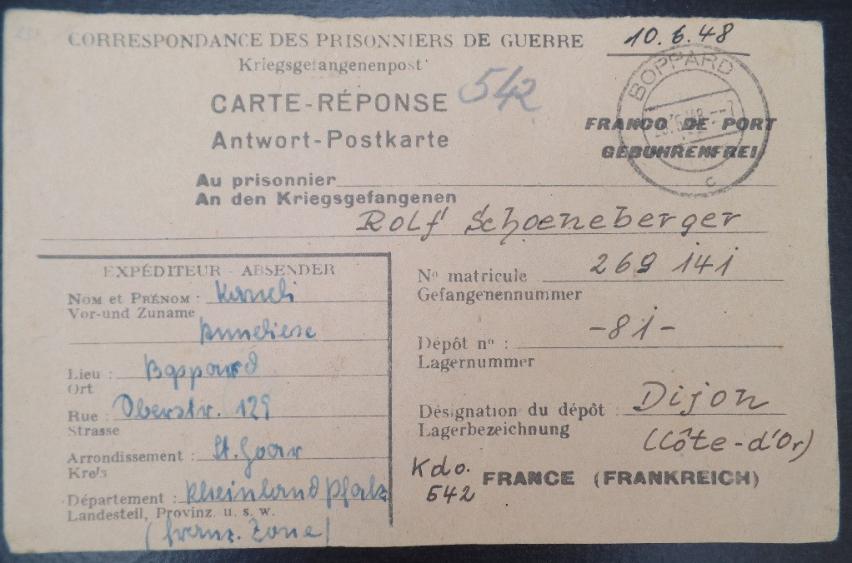 CORRESPONDANCE DES PRISONNIERS DE GUERRE 10.6.48
Kriegsgefangenenpost
CARTE-RÉPONSE 542
Antwort-Postkarte
BOPPARD
c
FRANCO DE PORT
GEBÜHRENFREI
Au prisonnier
An den Kriegsgefangenen
Rolf Schoeneberger
EXPÉDITEUR - ABSENDER
Nom et Prénom :
Vor-und Zuname
Anneliese
Lieu : Boppard
Ort
Rue : Oberstr. 129
Strasse
Arrondissement : St. Goar
Kreis
Département : Rheinland Pfalz
Landesteil, Provinz u. s. w.
(franz. Zone)
No matricule 269 141
Gefangenennummer
Dépôt no : -81-
Lagernummer
Désignation du dépôt : Dijon
Lagerbezeichnung (Côte-d'Or)
Kdo. 
542
FRANCE (FRANKREICH)